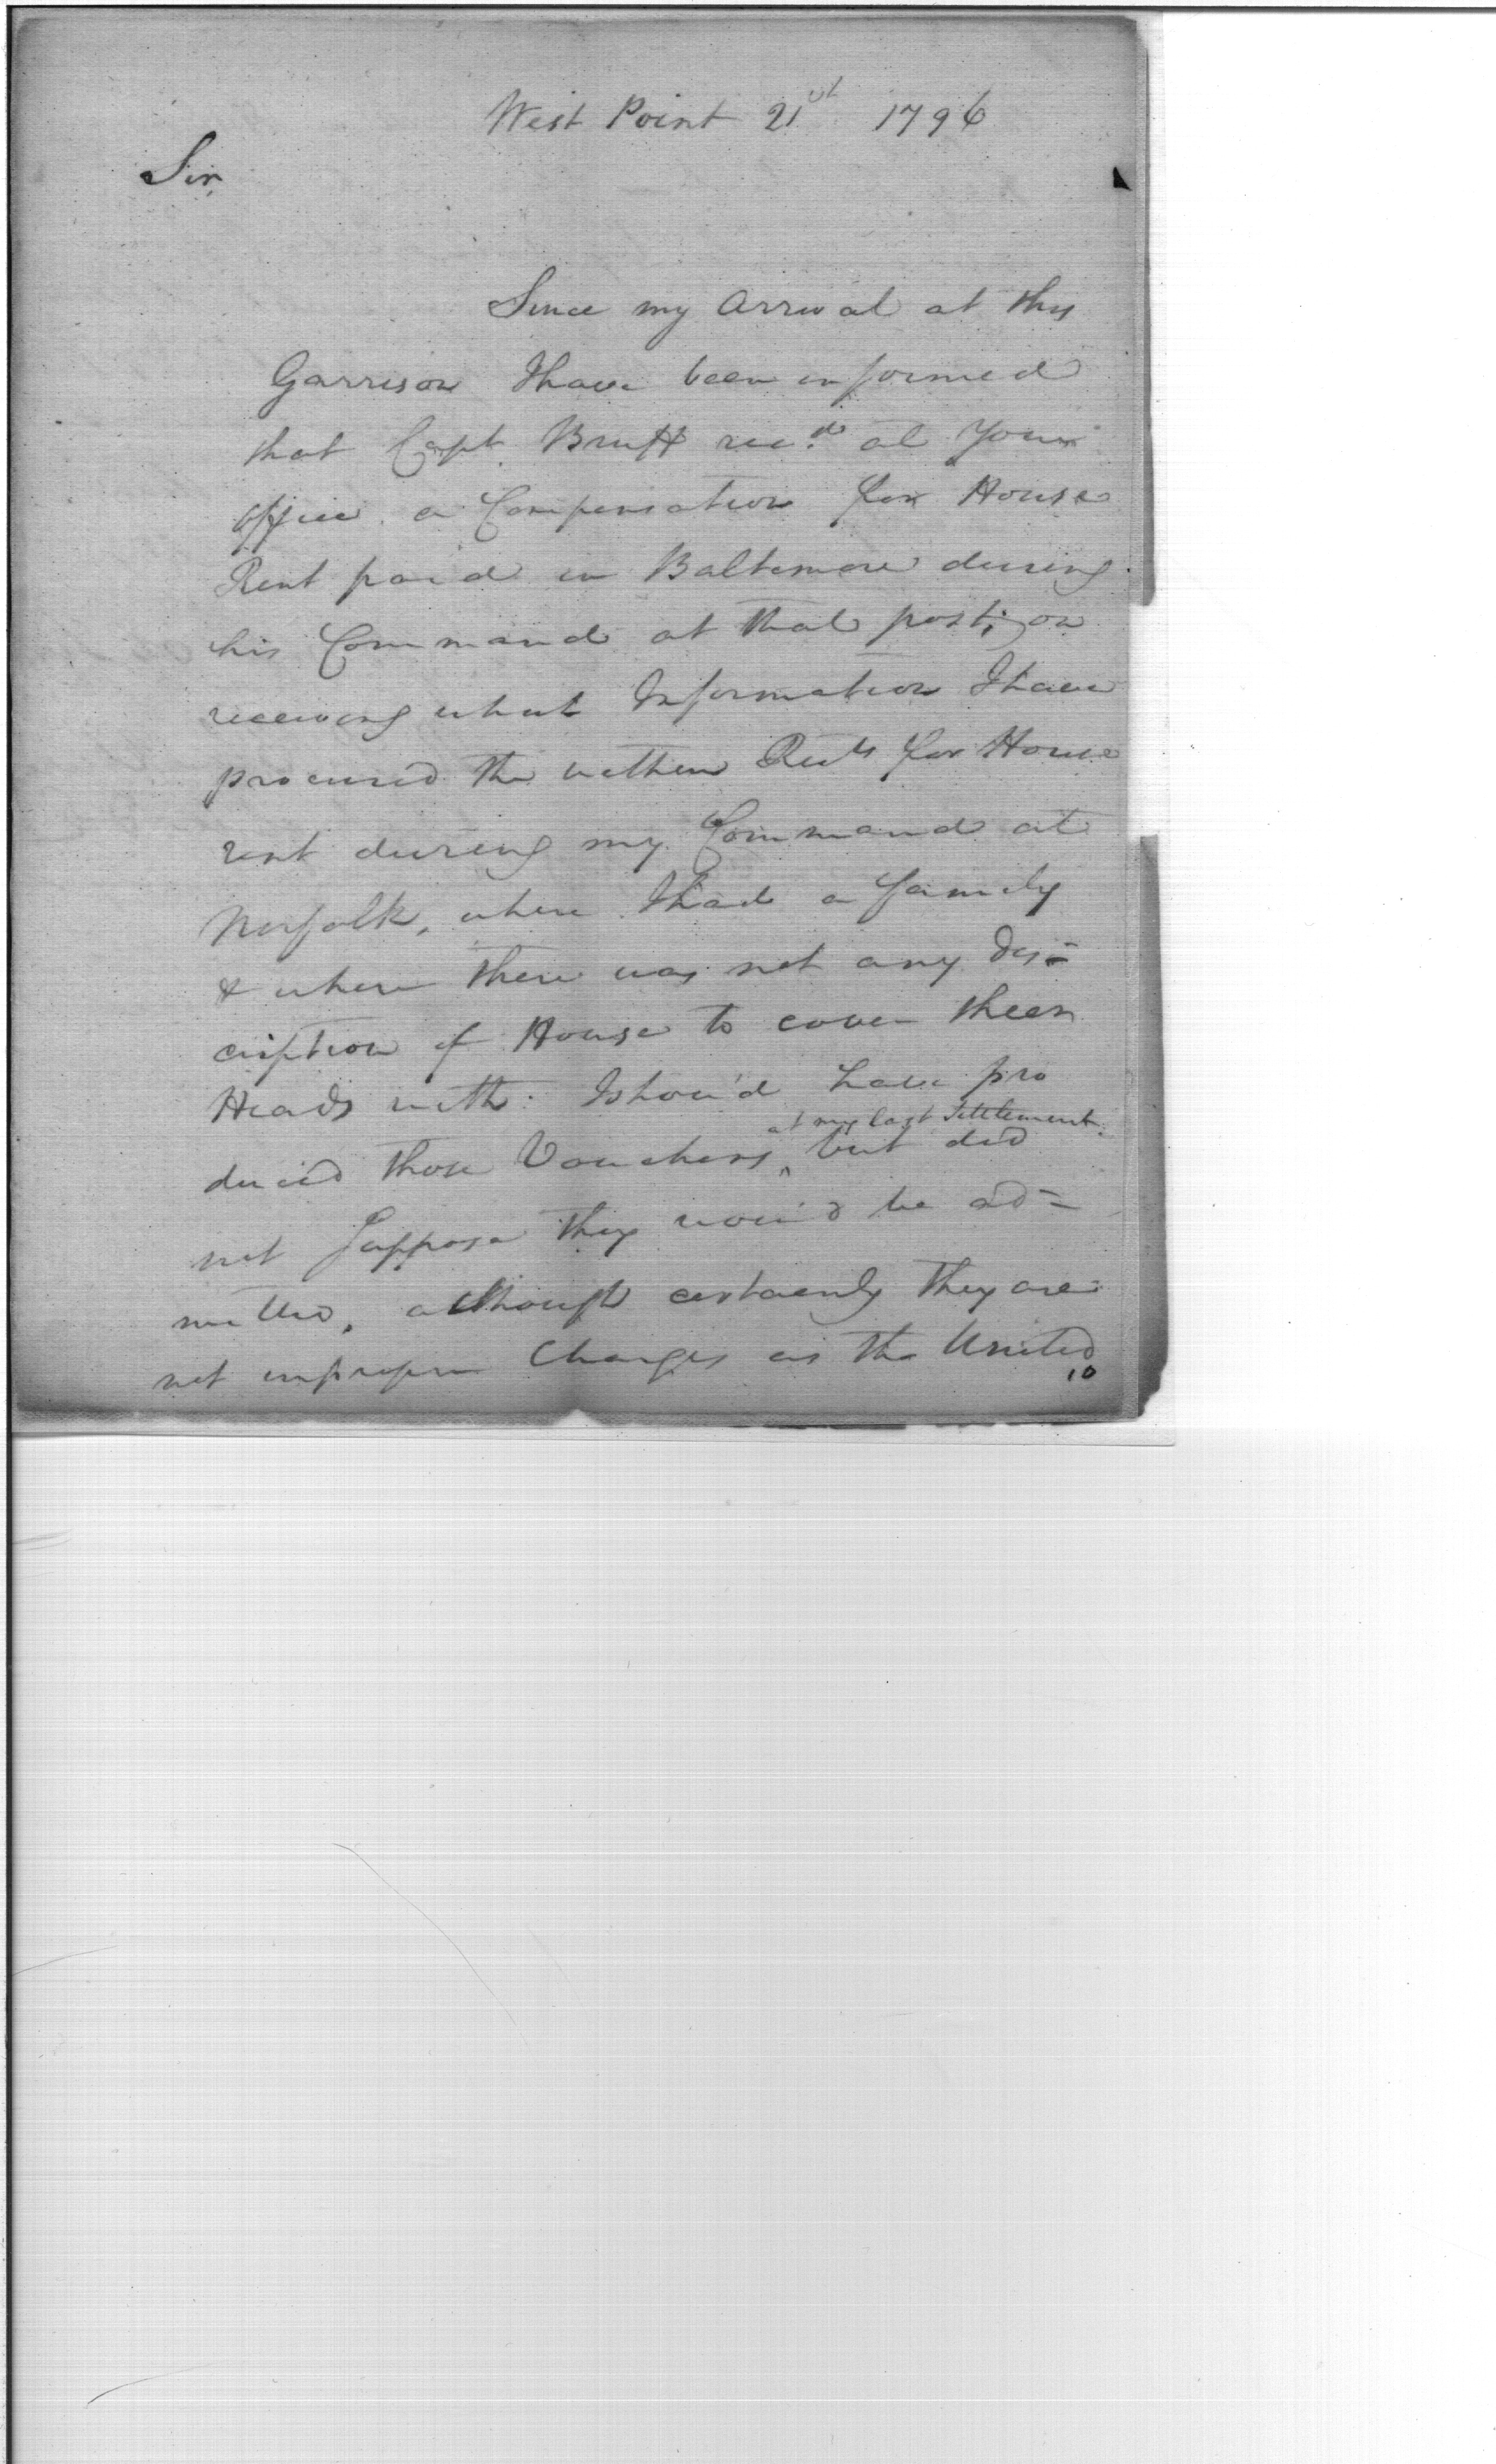 West Point 21st 1796
Sir,
Since my Arrival at this
Garrison I have been informed
that Capt. Bruff recd. at Your
office a Compensation for House
Rent paid in Baltimore during
his Command at that post; on
receiving what Information I have
procured the within Rec'ts for House
rent during my Command at
Norfolk, where I had a family
& where there was not any des=
cription of House to cover their
Heads with. I shou'd have pro
at my last Settlement.
duced those Vouchers ^ but did
not Suppose they wou'd be ad=
mitted, although certainly they are
not improper Charges as the United
10